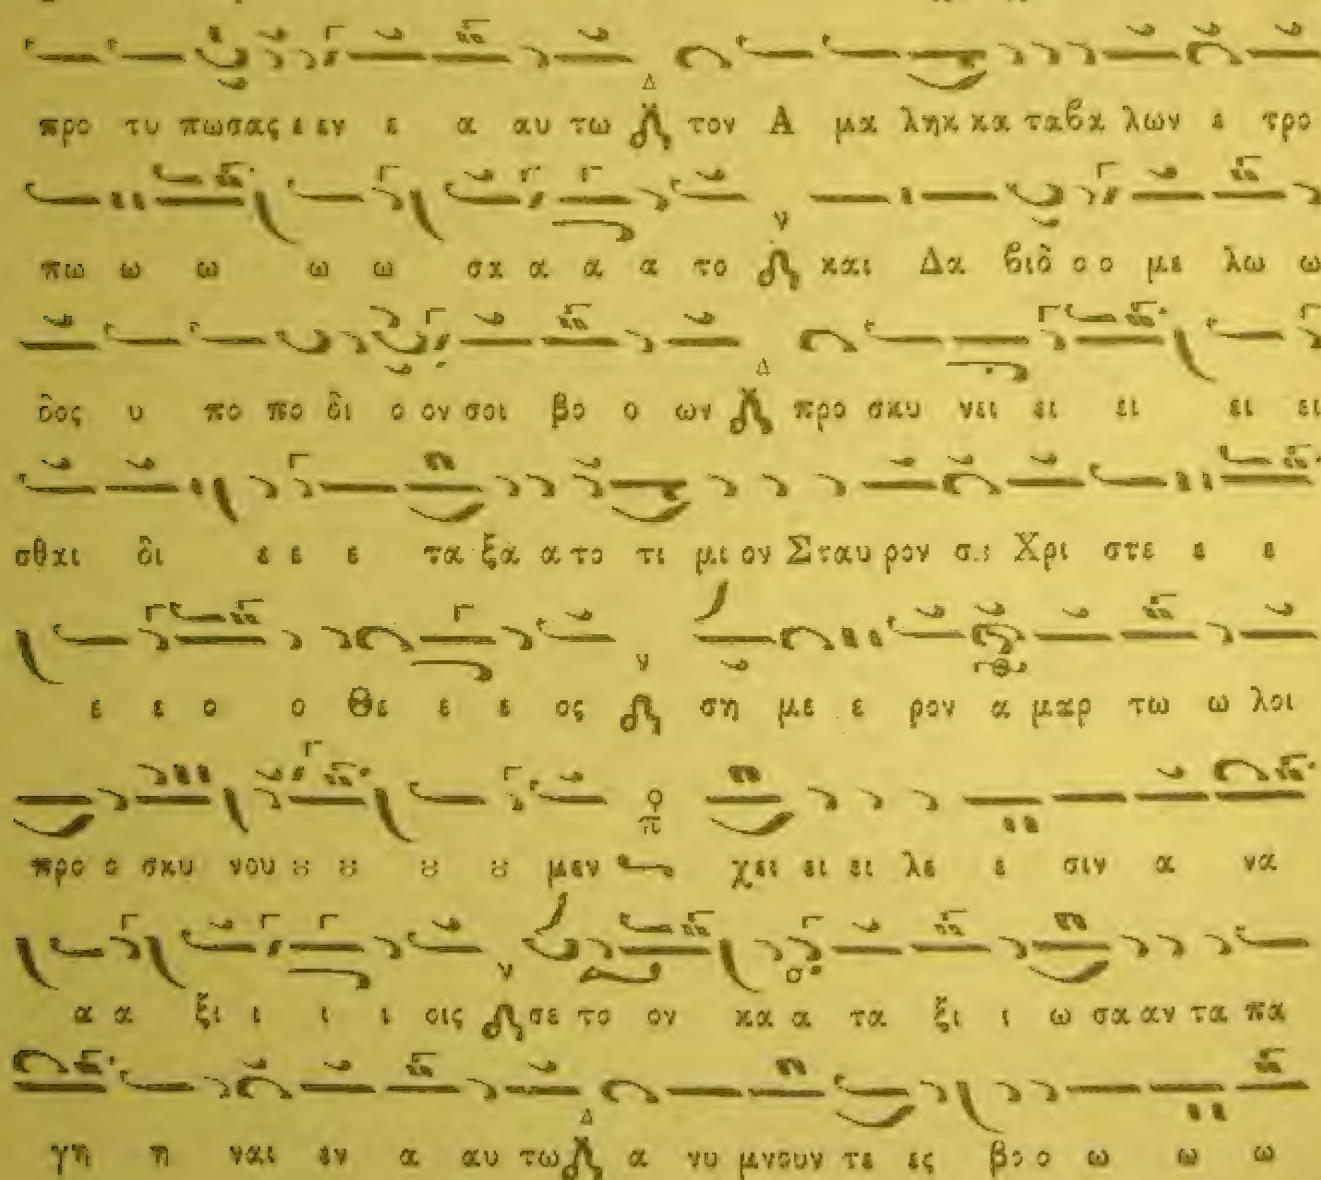 προ τυ πωσας ε εν ε α αυ τω Δ τον Α μα ληκ κα ταβα λων ε τρο
πω ω ω ω ω σκα α α α το ν και Δα βιδ ο ο με λω ω
δος υ πο πο δι ο ον σοι βο ο ων Δ προ σκυ νει ει ει ει ει
σθαι δι ε ε ε τα ξα α το τι μι ον Σταυ ρον σου Χρι στε ε ε
ε ε ο ο Θε ε ε ος ν ση με ε ρον α μαρ τω ω λοι
προ ο σκυ νου ου ου ου ου μεν π χει ει ει ει λε ε σιν α να
α α ξι ι ι ι οις ν σε το ον κα α τα ξι ι ω σα αν τα πα
γη η ναι εν α αυ τω Δ α νυ μνουν τε ες βο ο ω ω ω